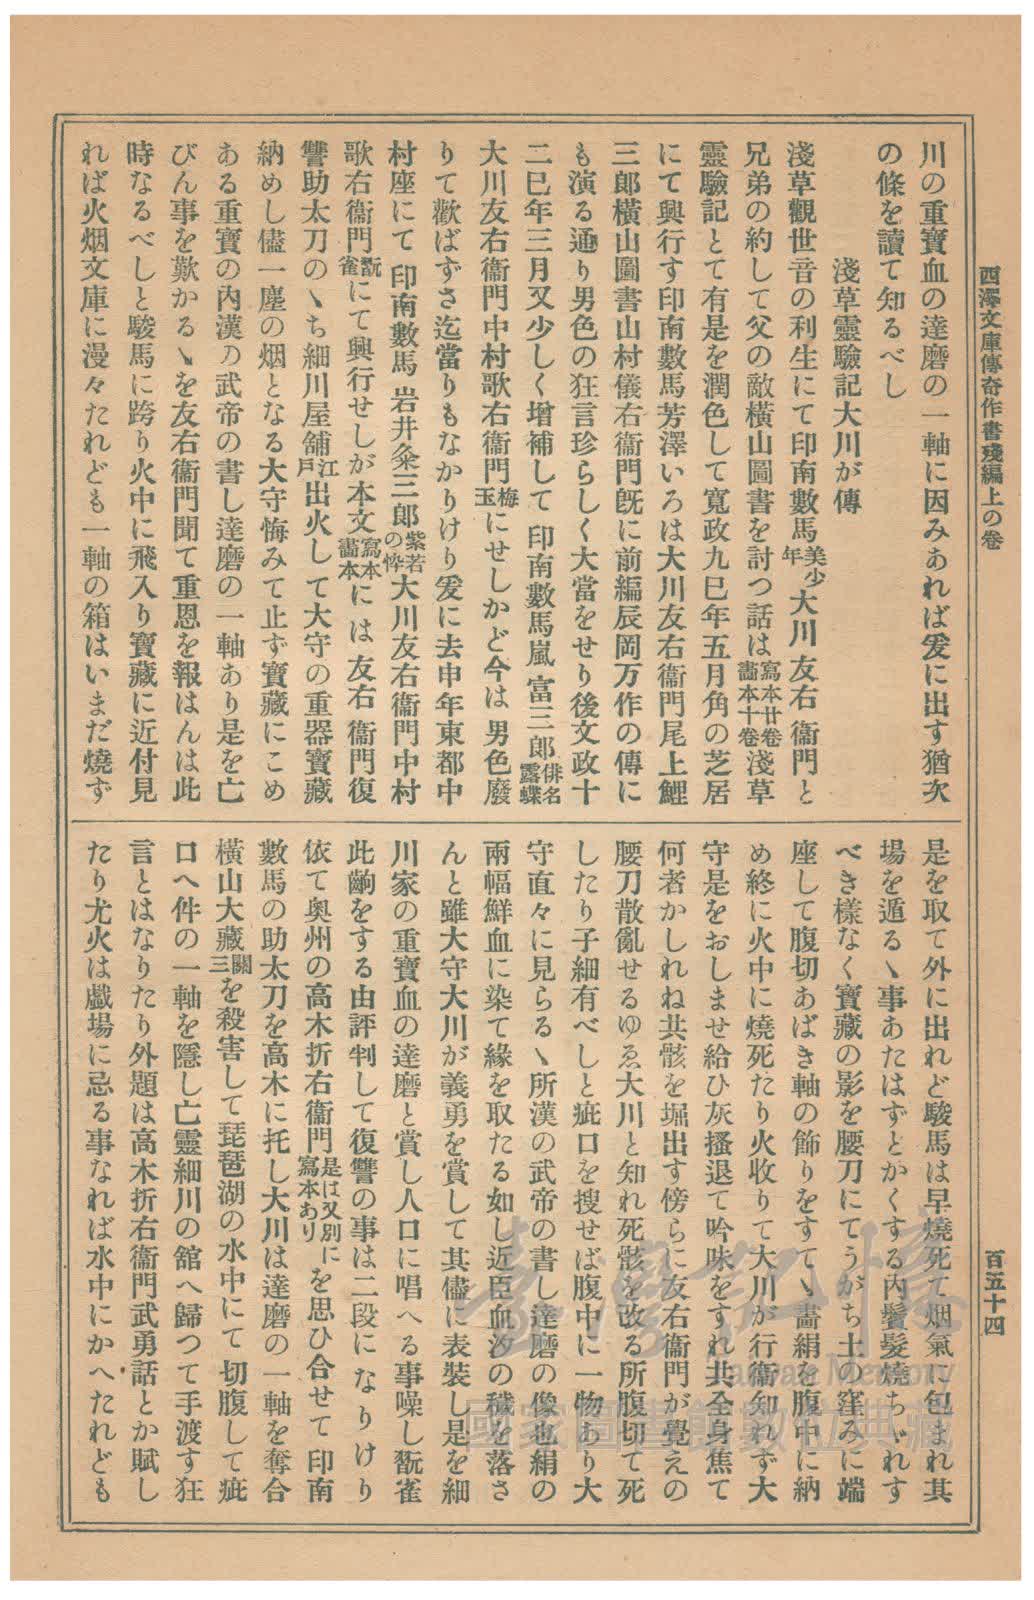 西澤文庫傳奇作書殘編上の卷
百五十四
川の重寶血の達磨の一軸に因みあれば爰に出す猶次
の條を讀て知るべし
淺草靈驗記大川が傳
淺草觀世音の利生にて印南數馬美少年大川友右衞門と
兄弟の約して父の敵横山圖書を討つ話は寫本廿卷畵本十卷淺草
靈驗記とて有是を潤色して寬政九巳年五月角の芝居
にて興行す印南數馬芳澤いろは大川友右衞門尾上鯉
三郎横山圖書山村儀右衞門既に前編辰岡万作の傳に
も演る通り男色の狂言珍らしく大當をせり後文政十
二巳年三月又少しく增補して印南數馬嵐富三郎俳名露蝶
大川友右衞門中村歌右衞門梅玉にせしかど今は男色廢
りて歡ばずさ迄當りもなかりけり爰に去申年東都中
村座にて印南數馬岩井粂三郎紫若の忰大川友右衞門中村
歌右衞門翫雀にて興行せしが本文寫本畵本には友右衞門復
讐助太刀のゝち細川屋舗江戸出火して大守の重器寶藏
納めし儘一塵の烟となる大守悔みて止ず寶藏にこめ
ある重寶の內漢の武帝の書し達磨の一軸あり是を亡
びん事を歎かるゝを友右衞門聞て重恩を報はんは此
時なるべしと駿馬に跨り火中に飛入り寶藏に近付見
れば火烟文庫に漫々たれども一軸の箱はいまだ燒ず
是を取て外に出れど駿馬は早燒死て烟氣に包まれ其
場を遁るゝ事あたはずとかくする內鬢髮燒ちゞれす
べき樣なく寶藏の影を腰刀にてうがち土の窪みに端
座して腹切あばき軸の飾りをすてゝ畵絹を腹中に納
め終に火中に燒死たり火收りて大川が行衞知れず大
守是をおしませ給ひ灰搔退て吟味をすれ共全身焦て
何者かしれね共骸を堀出す傍らに友右衞門が覺えの
腰刀散亂せるゆゑ大川と知れ死骸を改る所腹切て死
したり子細有べしと疵口を搜せば腹中に一物あり大
守直々に見らるゝ所漢の武帝の書し達磨の像也絹の
兩幅鮮血に染て緣を取たる如し近臣血汐の穢を落さ
んと雖大守大川が義勇を賞して其儘に表裝し是を細
川家の重寶血の達磨と賞し人口に唱へる事噪し翫雀
此齣をする由評判して復讐の事は二段になりけり
依て奧州の高木折右衞門是は又別に寫本ありを思ひ合せて印南
數馬の助太刀を高木に托し大川は達磨の一軸を奪合
横山大藏關三を殺害して琵琶湖の水中にて切腹して疵
口へ件の一軸を隱し亡靈細川の舘へ歸つて手渡す狂
言とはなりたり外題は高木折右衞門武勇話とか賦し
たり尤火は戲場に忌る事なれば水中にかへたれども
臺灣記憶
Taiwan Memory
國家圖書館數位典藏